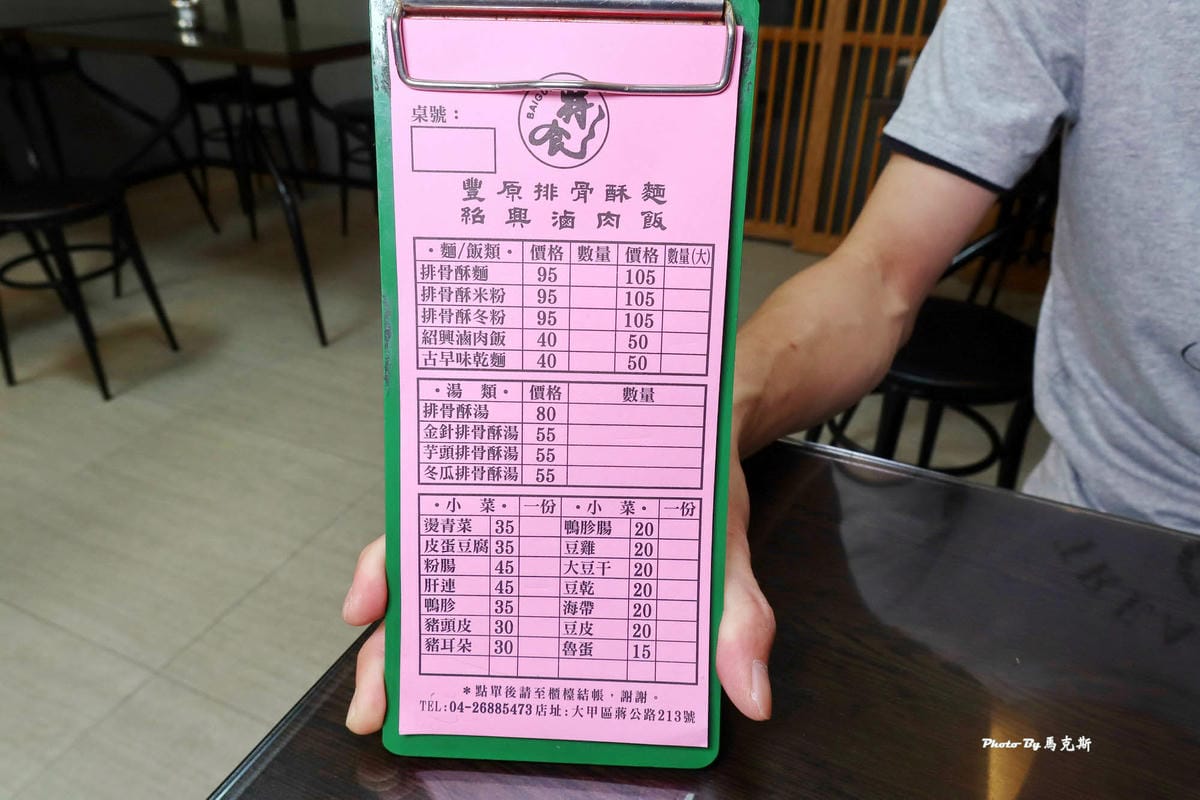 桌號：
BAIGU
將食
豐原排骨酥麵
紹興滷肉飯
·麵/飯類· 價格 數量 價格 數量(大)
排骨酥麵 95 105
排骨酥米粉 95 105
排骨酥冬粉 95 105
紹興滷肉飯 40 50
古早味乾麵 40 50
·湯 類· 價格 數量
排骨酥湯 80
金針排骨酥湯 55
芋頭排骨酥湯 55
冬瓜排骨酥湯 55
·小 菜· 一份 ·小 菜· 一份
燙青菜 35 鴨胗腸 20
皮蛋豆腐 35 豆雞 20
粉腸 45 大豆干 20
肝連 45 豆乾 20
鴨胗 35 海帶 20
豬頭皮 30 豆皮 20
豬耳朵 30 魯蛋 15
＊點單後請至櫃檯結帳，謝謝。
TEL:04-26885473店址:大甲區蔣公路213號
Photo By 馬克斯